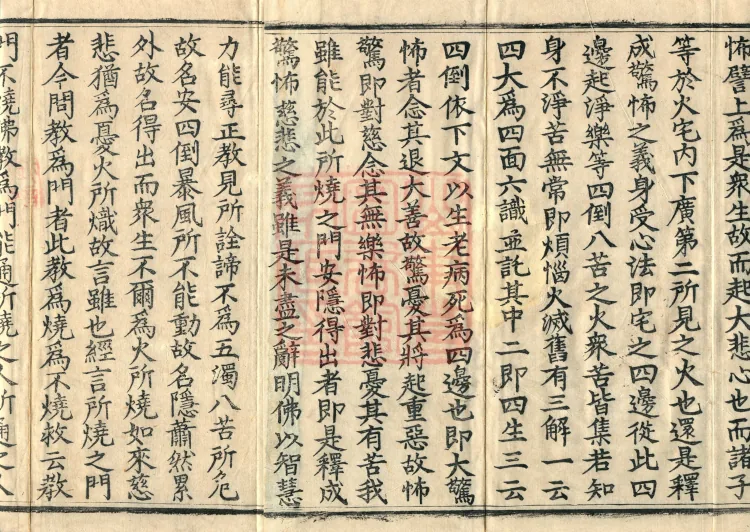 怖譬上為是衆生故而起大悲心也而諸子
等於火宅內下廣第二所見之火也還是釋
成驚怖之義身受心法即宅之四邊從此四
邊起淨樂等四倒八苦之火衆苦皆集若知
身不淨苦無常即煩惱火滅舊有三解一云
四大為四面六識並託其中二即四生三云
四倒依下文以生老病死為四邊也即大驚
怖者念其退大善故驚憂其將起重惡故怖
驚即對慈念其無樂怖即對悲憂其有苦我
雖能於此所燒之門安隱得出者即是釋成
驚怖慈悲之義雖是未盡之辭明佛以智慧
力能尋正教見所詮諦不為五濁八苦所危
故名安四倒暴風所不能動故名隱蕭然累
外故名得出而衆生不爾為火所燒如來慈
悲猶為憂火所熾故言雖也經言所燒之門
者今問教為門者此教為燒為不燒救云教
門不燒佛教為門能通所燒之人所通之人